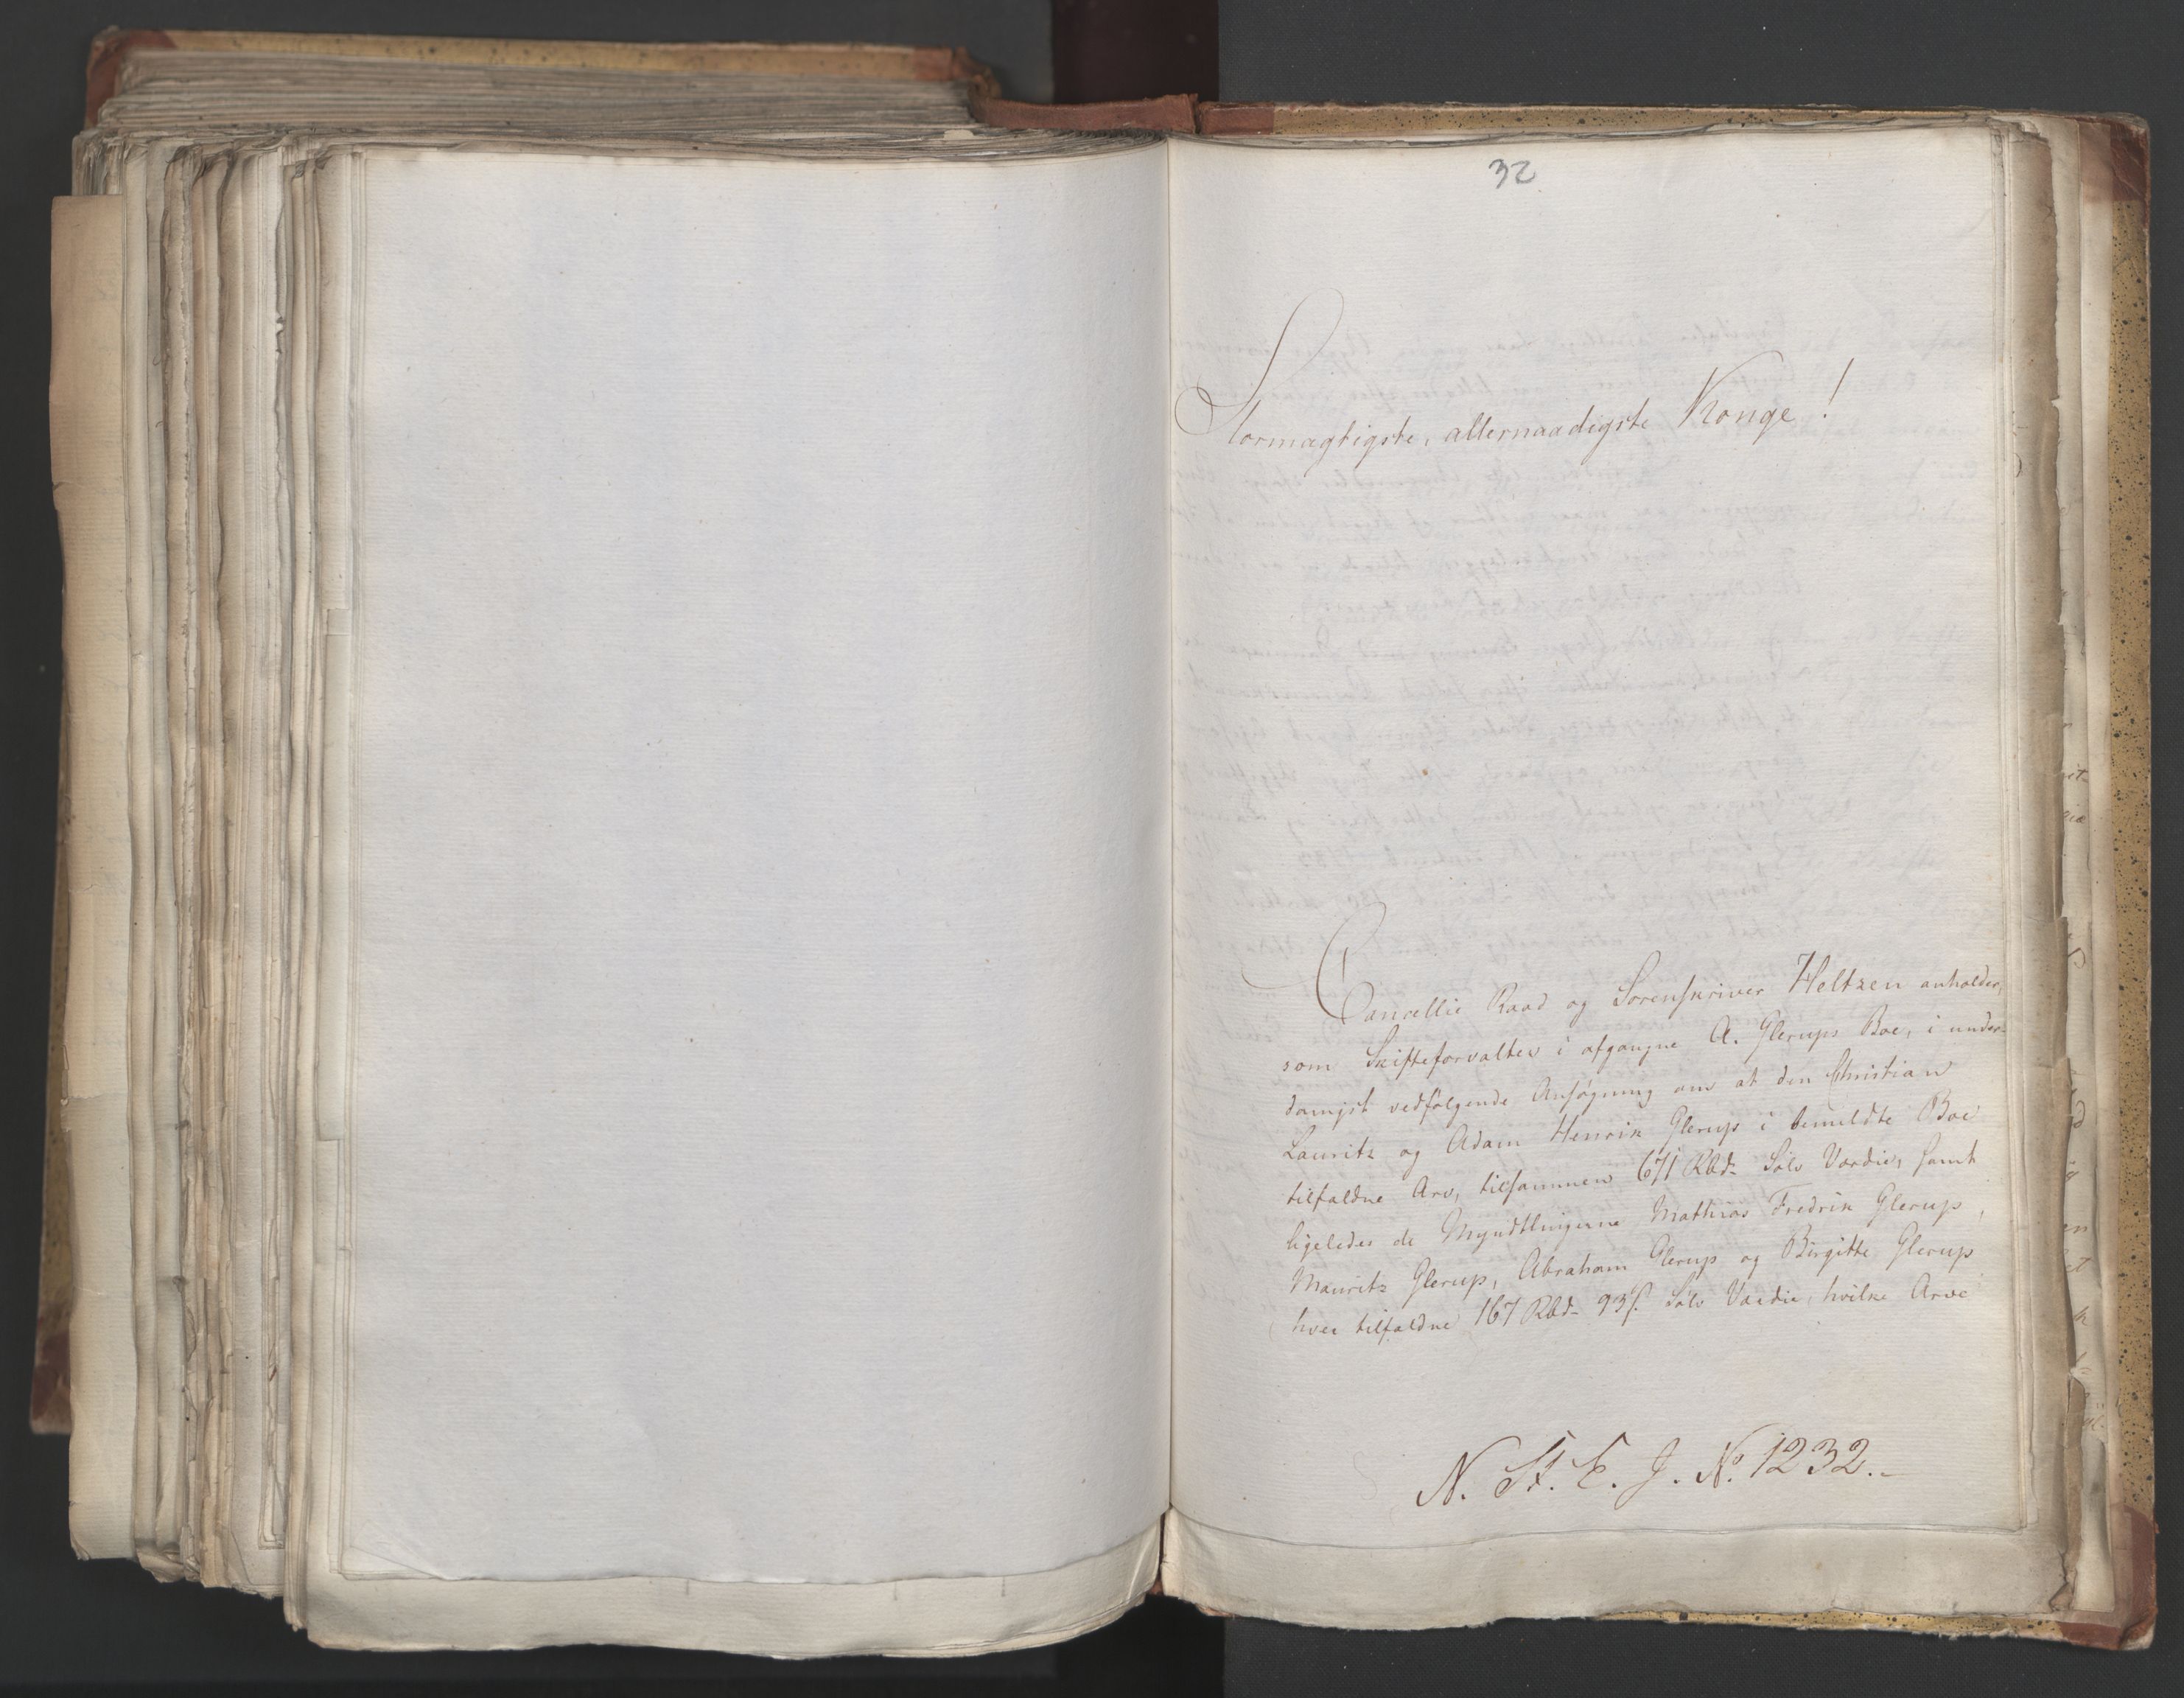 32
Stormægtigste, allernaadigste Konge!
Cancellie Raad og Sorenskriver Heltzen anholder,
som Skifteforvalter i afgangne A. Glerups Boe, i under-
danigst vedfølgende Ansøgning om at den Christian
Lauritz og Adam Henrik Glerup i bemeldte Boe
tilfaldne Arv, tilsammen 671 Rbd. Sølv Værdie, samt
ligeledes de Myndtlingerne Mathias Fredrik Glerup,
Mauritz Glerup, Abraham Glerup og Birgitte Glerup
hver tilfaldne 167 Rbd. 93 s. Sølv Værdie, hvilke Arve
N. St. E. J. No. 1232.